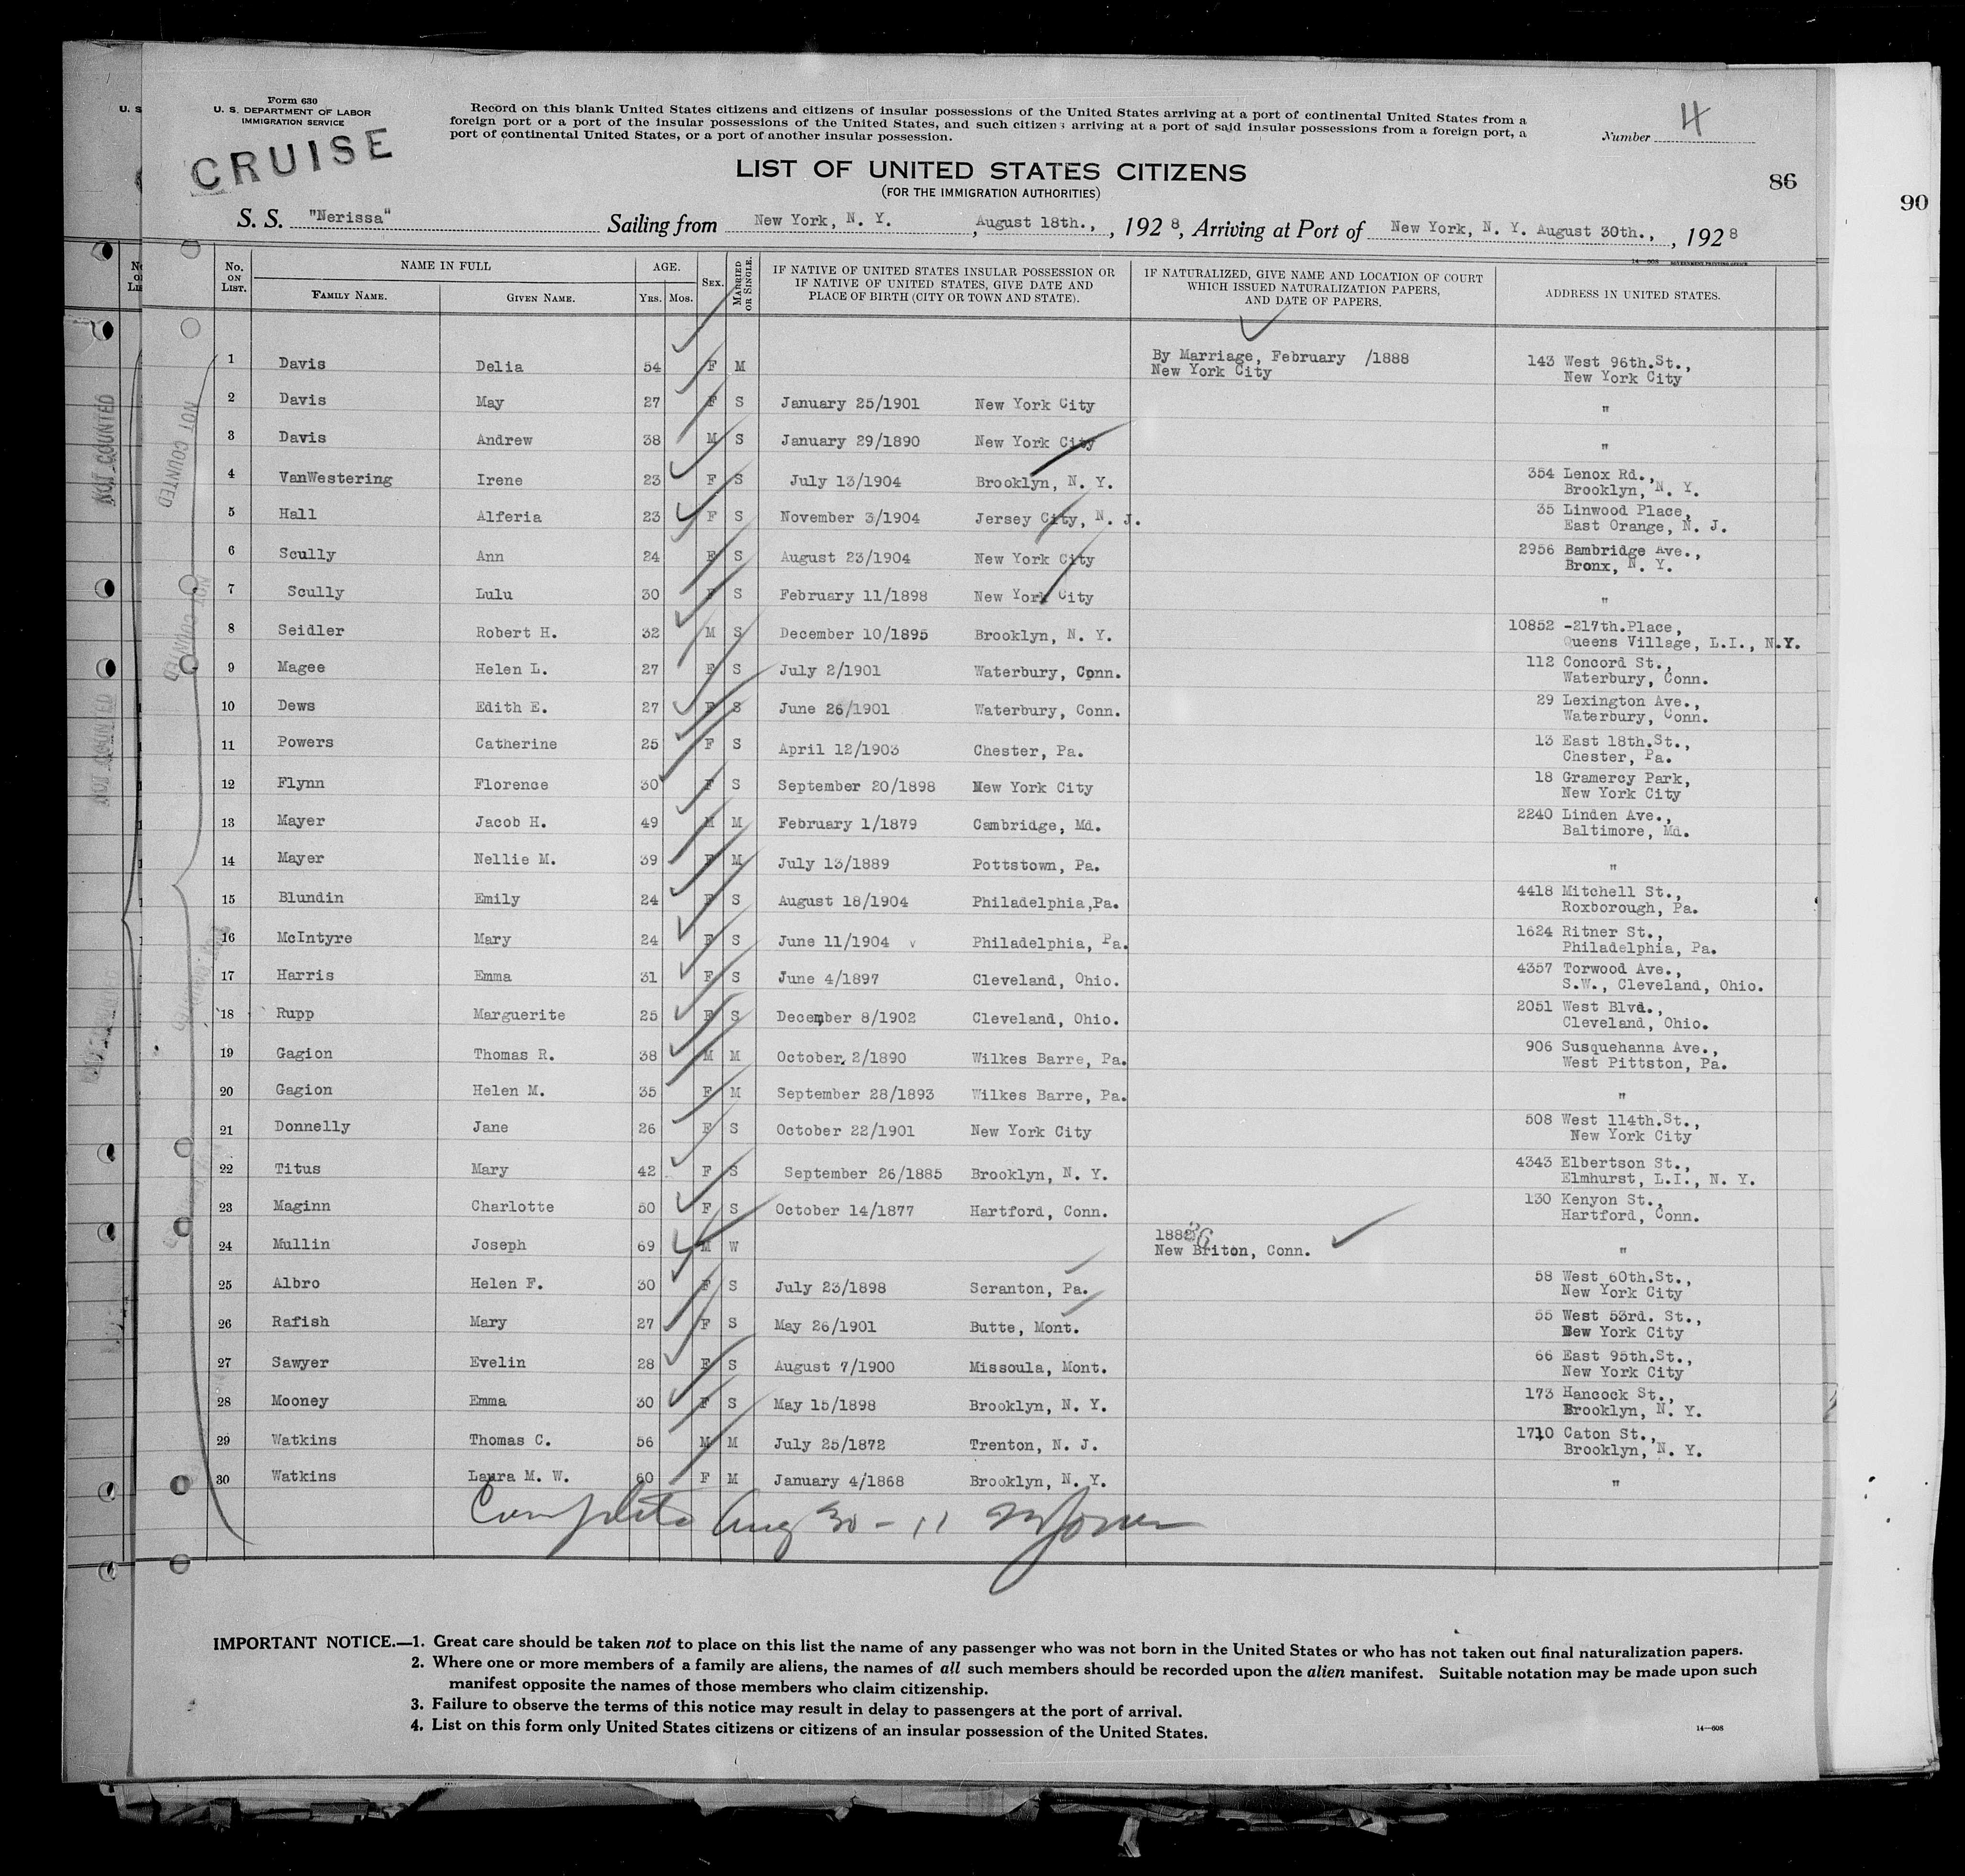 Form 630
U. S. DEPARTMENT OF LABOR
IMMIGRATION SERVICE
CRUISE
Record on this blank United States citizens and citizens of insular possessions of the United States arriving at a port of continental United States from a
foreign port or a port of the insular possessions of the United States, and such citizens arriving at a port of said insular possessions from a foreign port, a
port of continental United States, or a port of another insular possession.
Number 4
LIST OF UNITED STATES CITIZENS
(FOR THE IMMIGRATION AUTHORITIES)
86
90
S. S. "Nerissa" Sailing from New York, N. Y. , August 18th., , 1928, Arriving at Port of New York, N. Y. August 30th., , 1928
14—608 GOVERNMENT PRINTING OFFICE
No. on List. NAME IN FULL AGE. Sex. Married or Single. IF NATIVE OF UNITED STATES INSULAR POSSESSION OR IF NATIVE OF UNITED STATES, GIVE DATE AND PLACE OF BIRTH (CITY OR TOWN AND STATE). IF NATURALIZED, GIVE NAME AND LOCATION OF COURT WHICH ISSUED NATURALIZATION PAPERS, AND DATE OF PAPERS. ADDRESS IN UNITED STATES.
Family Name. Given Name. Yrs. Mos.
1 Davis Delia 54 F M By Marriage, February /1888 143 West 96th.St.,
New York City New York City
2 Davis May 27 F S January 25/1901 New York City "
3 Davis Andrew 38 M S January 29/1890 New York City "
4 VanWestering Irene 23 F S July 13/1904 Brooklyn, N. Y. 354 Lenox Rd.,
Brooklyn, N. Y.
5 Hall Alferia 23 F S November 3/1904 Jersey City, N. J. 35 Linwood Place,
East Orange, N. J.
6 Scully Ann 24 F S August 23/1904 New York City 2956 Bambridge Ave.,
Bronx, N. Y.
7 Scully Lulu 30 F S February 11/1898 New York City "
8 Seidler Robert H. 32 M S December 10/1895 Brooklyn, N. Y. 10852 -217th.Place,
Queens Village, L.I., N.Y.
9 Magee Helen L. 27 F S July 2/1901 Waterbury, Conn. 112 Concord St.,
Waterbury, Conn.
10 Dews Edith E. 27 F S June 26/1901 Waterbury, Conn. 29 Lexington Ave.,
Waterbury, Conn.
11 Powers Catherine 25 F S April 12/1903 Chester, Pa. 13 East 18th.St.,
Chester, Pa.
12 Flynn Florence 30 F S September 20/1898 New York City 18 Gramercy Park,
New York City
13 Mayer Jacob H. 49 M M February 1/1879 Cambridge, Md. 2240 Linden Ave.,
Baltimore, Md.
14 Mayer Nellie M. 39 F M July 13/1889 Pottstown, Pa. "
15 Blundin Emily 24 F S August 18/1904 Philadelphia,Pa. 4418 Mitchell St.,
Roxborough, Pa.
16 McIntyre Mary 24 F S June 11/1904 Philadelphia, Pa. 1624 Ritner St.,
Philadelphia, Pa.
17 Harris Emma 31 F S June 4/1897 Cleveland, Ohio. 4357 Torwood Ave.,
S.W., Cleveland, Ohio.
18 Rupp Marguerite 25 F S December 8/1902 Cleveland, Ohio. 2051 West Blvd.,
Cleveland, Ohio.
19 Gagion Thomas R. 38 M M October 2/1890 Wilkes Barre, Pa. 906 Susquehanna Ave.,
West Pittston, Pa.
20 Gagion Helen M. 35 F M September 28/1893 Wilkes Barre, Pa. "
21 Donnelly Jane 26 F S October 22/1901 New York City 508 West 114th.St.,
New York City
22 Titus Mary 42 F S September 26/1885 Brooklyn, N. Y. 4343 Elbertson St.,
Elmhurst, L.I., N. Y.
23 Maginn Charlotte 50 F S October 14/1877 Hartford, Conn. 130 Kenyon St.,
Hartford, Conn.
24 Mullin Joseph 69 M W 1886 "
New Briton, Conn.
25 Albro Helen F. 30 F S July 23/1898 Scranton, Pa. 58 West 60th.St.,
New York City
26 Rafish Mary 27 F S May 26/1901 Butte, Mont. 55 West 53rd. St.,
New York City
27 Sawyer Evelin 28 F S August 7/1900 Missoula, Mont. 66 East 95th.St.,
New York City
28 Mooney Emma 30 F S May 15/1898 Brooklyn, N. Y. 173 Hancock St.,
Brooklyn, N. Y.
29 Watkins Thomas C. 56 M M July 25/1872 Trenton, N. J. 1710 Caton St.,
Brooklyn, N. Y.
30 Watkins Laura M. W. 60 F M January 4/1868 Brooklyn, N. Y. "
NOT COUNTED
NOT COUNTED
NOT COUNTED
NOT COUNTED
Complete Aug 30 - 11
IMPORTANT NOTICE.—1. Great care should be taken not to place on this list the name of any passenger who was not born in the United States or who has not taken out final naturalization papers.
2. Where one or more members of a family are aliens, the names of all such members should be recorded upon the alien manifest. Suitable notation may be made upon such
manifest opposite the names of those members who claim citizenship.
3. Failure to observe the terms of this notice may result in delay to passengers at the port of arrival.
4. List on this form only United States citizens or citizens of an insular possession of the United States.
14—608